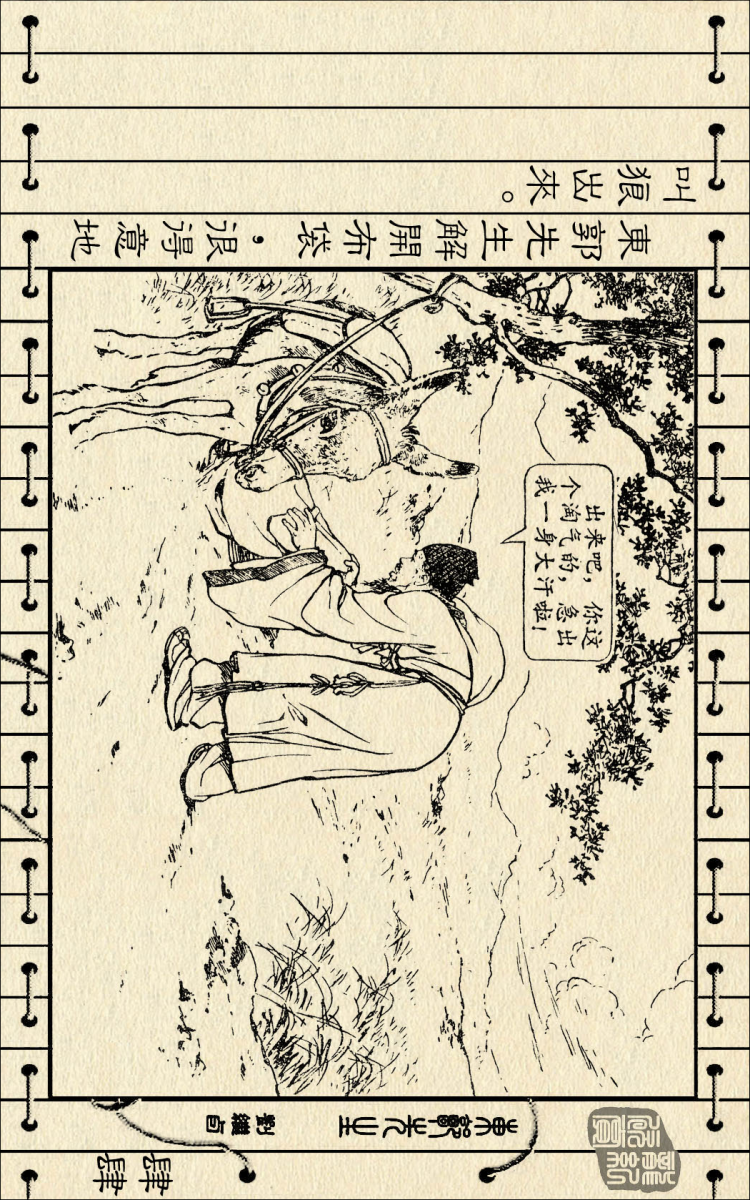 東郭先生
劉繼卣
肆肆
東郭先生解開布袋，很得意地
叫狼出來。
出来吧，你这
个淘气的，急出
我一身大汗啦！